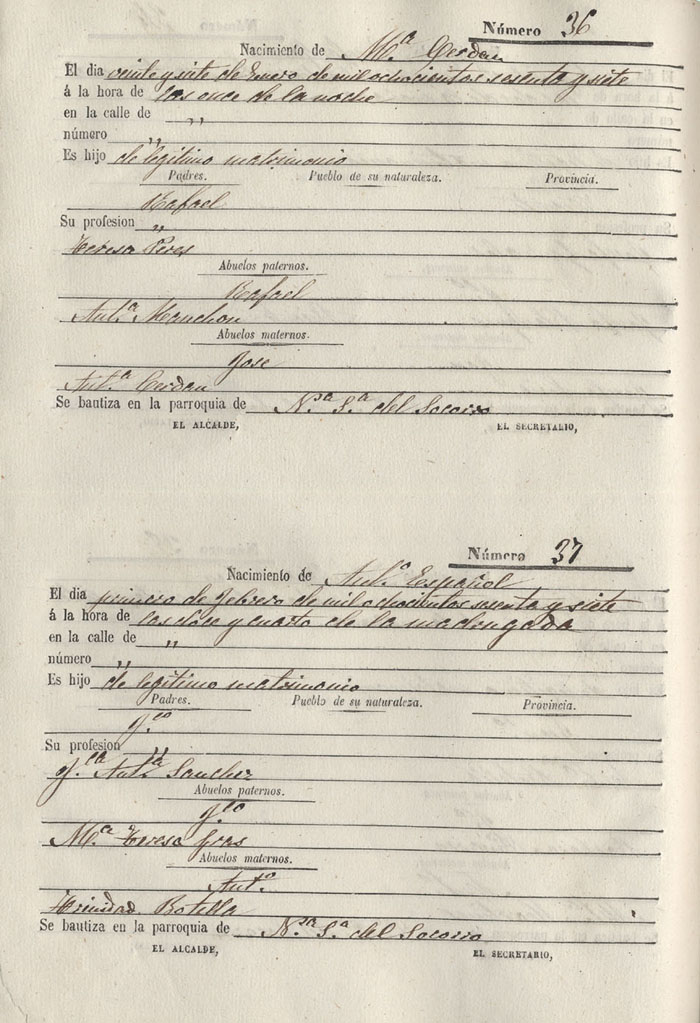 Número 36
Nacimiento de Mª Cerdan
El dia veinte y siete de Enero de mil ochocientos sesenta y siete
á la hora de las once de la noche
en la calle de "
número "
Es hijo de legítimo matrimonio
Padres. Pueblo de su naturaleza. Provincia.
Rafael
Su profesion "
Teresa Peres
Abuelos paternos.
Rafael
Antª Manchon
Abuelos maternos.
Jose
Antª Cerdan
Se bautiza en la parroquia de Nª Sª del Socorro
EL ALCALDE, EL SECRETARIO,
Número 37
Nacimiento de Antº Español
El dia primero de Febrero de mil ochocientos sesenta y siete
á la hora de las doce y cuarto de la madrugada
en la calle de "
número "
Es hijo de legítimo matrimonio
Padres. Pueblo de su naturaleza. Provincia.
Fco
Su profesion "
Fca Antª Sanchez
Abuelos paternos.
Fco
Mª Teresa Gras
Abuelos maternos.
Antº
Trinidad Botella
Se bautiza en la parroquia de Nª Sª del Socorro
EL ALCALDE, EL SECRETARIO,